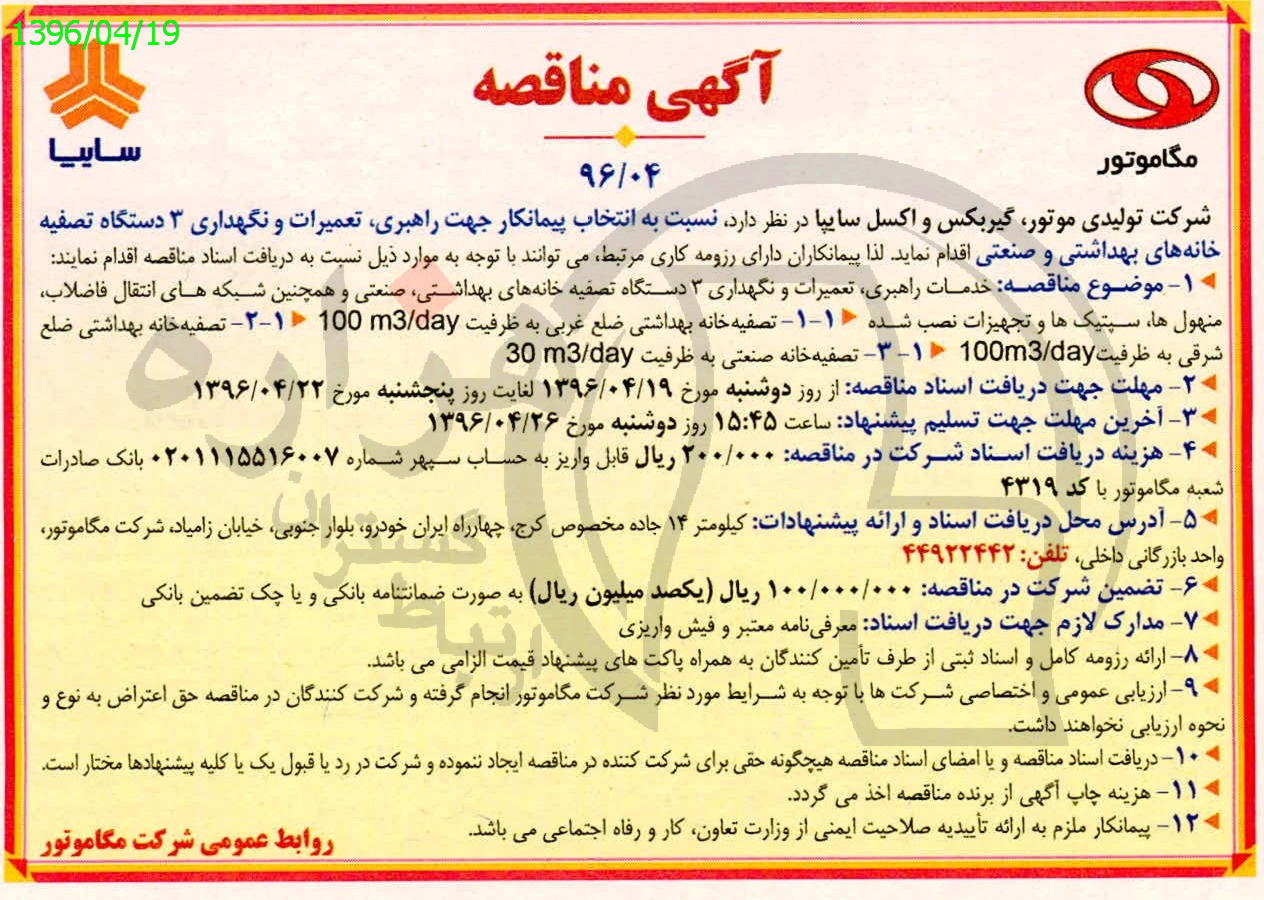 1396/04/19
سایپا
مگاموتور
آگهی مناقصه
۹۶/۰۴
شرکت تولیدی موتور، گیربکس و اکسل سایپا در نظر دارد، نسبت به انتخاب پیمانکار جهت راهبری، تعمیرات و نگهداری ۳ دستگاه تصفیه
خانه‌های بهداشتی و صنعتی اقدام نماید. لذا پیمانکاران دارای رزومه کاری مرتبط، می توانند با توجه به موارد ذیل نسبت به دریافت اسناد مناقصه اقدام نمایند:
۱- موضوع مناقصه: خدمات راهبری، تعمیرات و نگهداری ۳ دستگاه تصفیه خانه‌های بهداشتی، صنعتی و همچنین شبکه های انتقال فاضلاب،
منهول ها، سپتیک ها و تجهیزات نصب شده ۱-۱- تصفیه‌خانه بهداشتی ضلع غربی به ظرفیت 100 m3/day ۱-۲- تصفیه‌خانه بهداشتی ضلع
شرقی به ظرفیت 100m3/day ۱-۳- تصفیه‌خانه صنعتی به ظرفیت 30 m3/day
۲- مهلت جهت دریافت اسناد مناقصه: از روز دوشنبه مورخ ۱۳۹۶/۰۴/۱۹ لغایت روز پنجشنبه مورخ ۱۳۹۶/۰۴/۲۲
۳- آخرین مهلت جهت تسلیم پیشنهاد: ساعت ۱۵:۴۵ روز دوشنبه مورخ ۱۳۹۶/۰۴/۲۶
۴- هزینه دریافت اسناد شرکت در مناقصه: ۲۰۰/۰۰۰ ریال قابل واریز به حساب سپهر شماره ۰۲۰۱۱۱۵۵۱۶۰۰۷ بانک صادرات
شعبه مگاموتور با کد ۴۳۱۹
۵- آدرس محل دریافت اسناد و ارائه پیشنهادات: کیلومتر ۱۴ جاده مخصوص کرج، چهارراه ایران خودرو، بلوار جنوبی، خیابان زامیاد، شرکت مگاموتور،
واحد بازرگانی داخلی، تلفن: ۴۴۹۲۲۴۴۲
۶- تضمین شرکت در مناقصه: ۱۰۰/۰۰۰/۰۰۰ ریال (یکصد میلیون ریال) به صورت ضمانتنامه بانکی و یا چک تضمین بانکی
۷- مدارک لازم جهت دریافت اسناد: معرفی‌نامه معتبر و فیش واریزی
۸- ارائه رزومه کامل و اسناد ثبتی از طرف تأمین کنندگان به همراه پاکت های پیشنهاد قیمت الزامی می باشد.
۹- ارزیابی عمومی و اختصاصی شرکت ها با توجه به شرایط مورد نظر شرکت مگاموتور انجام گرفته و شرکت کنندگان در مناقصه حق اعتراض به نوع و
نحوه ارزیابی نخواهند داشت.
۱۰- دریافت اسناد مناقصه و یا امضای اسناد مناقصه هیچگونه حقی برای شرکت کننده در مناقصه ایجاد ننموده و شرکت در رد یا قبول یک یا کلیه پیشنهادها مختار است.
۱۱- هزینه چاپ آگهی از برنده مناقصه اخذ می گردد.
۱۲- پیمانکار ملزم به ارائه تأییدیه صلاحیت ایمنی از وزارت تعاون، کار و رفاه اجتماعی می باشد.
روابط عمومی شرکت مگاموتور
فزاره
گستران
ارتباط